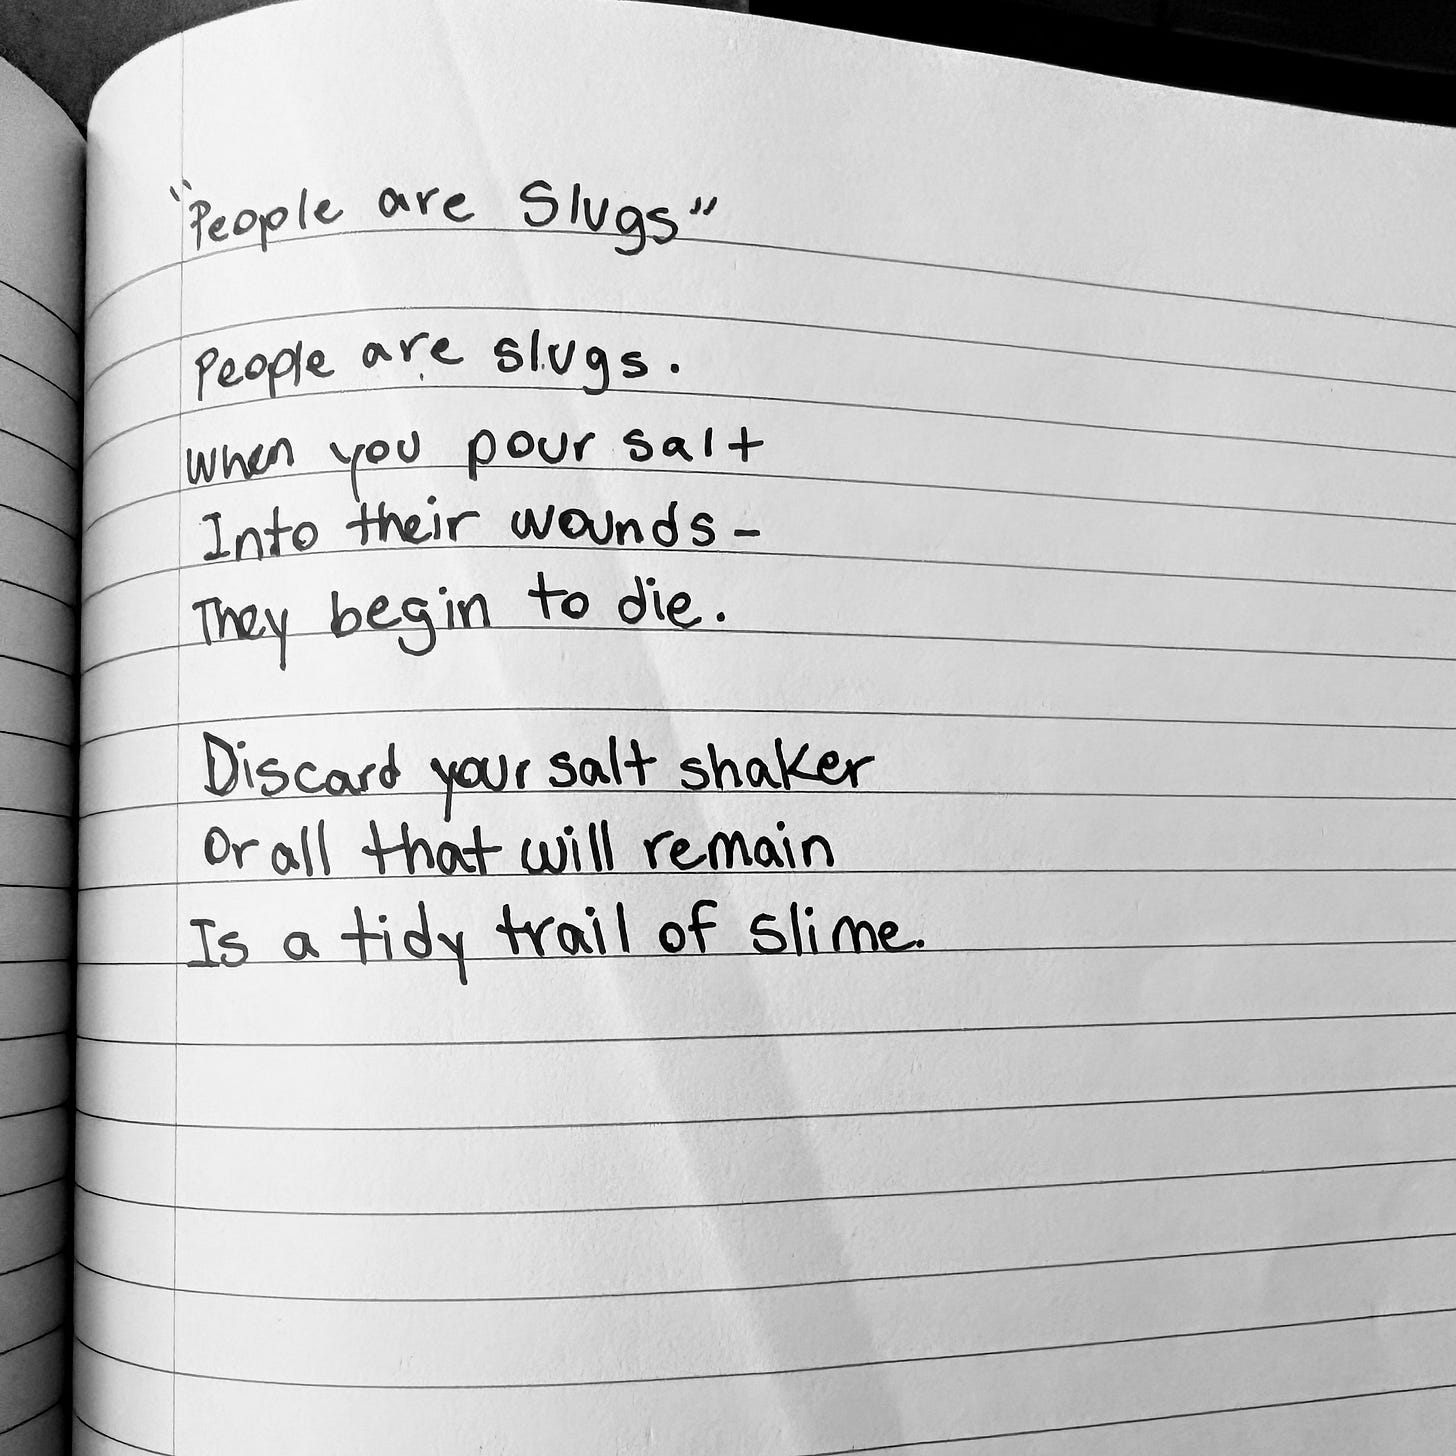 "People are Slugs"
People are slugs.
When you pour salt
Into their wounds-
They begin to die.
Discard your salt shaker
Or all that will remain
Is a tidy trail of slime.